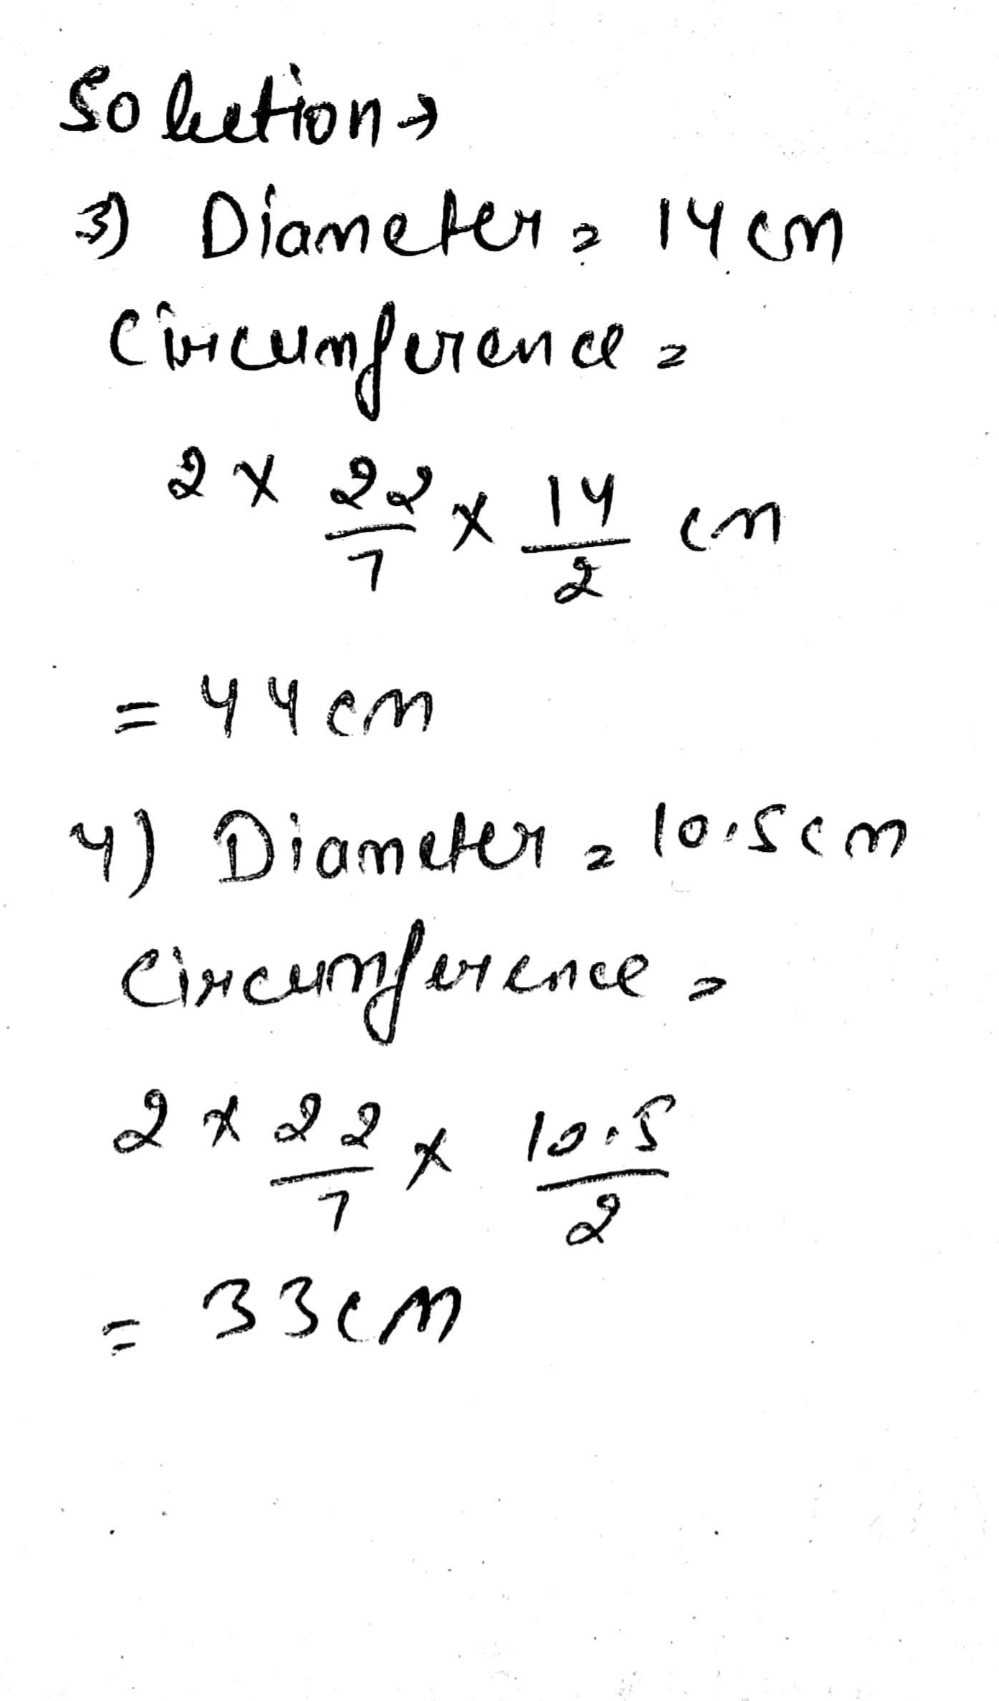 Solution →
3) Diameter = 14 cm
Circumference =
2 × 22/7 × 14/2 cm
= 44 cm
4) Diameter = 10.5 cm
Circumference =
2 × 22/7 × 10.5/2
= 33 cm